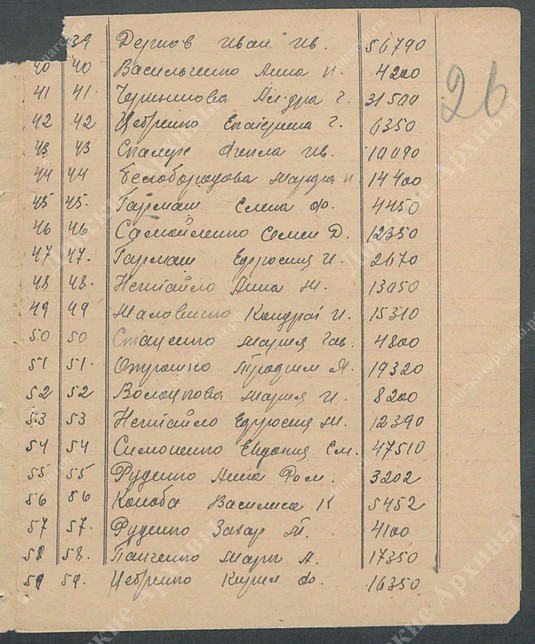 39 Дернов Иван Ив. 56790
40 40 Васильченко Анна И. 4200
41 41. г. 31500
42 42 Цебренко Екатерина г. 6350
43 43 Ив. 10090
44 44 Белобородова 14400
45 45. Гармаш Елена Ф. 4450
46 46 Самойленко Семен Д. 12350
47 47. Гармаш Ефросиния И. 2670
48 48. Нетайло Анна М. 13050
49 49 Маловенко Кондрат И. 15310
50 50 Стаценко Мария Гав. 4800
51 51. Трофим Я. 19320
52 52 Мария И. 8200
53 53 Нетайло Ефросиния М. 12390
54 54 Симоненко Евдокия Ем. 47510
55 55 Руденко Анна Ром. 3202
56 56 Коноба Василиса К 5452
57 57. Руденко Захар М. 4100
58 58. Панченко Марк А. 17350
59 59. Цебренко Кирил Ф. 16350
26
Донские Архивы